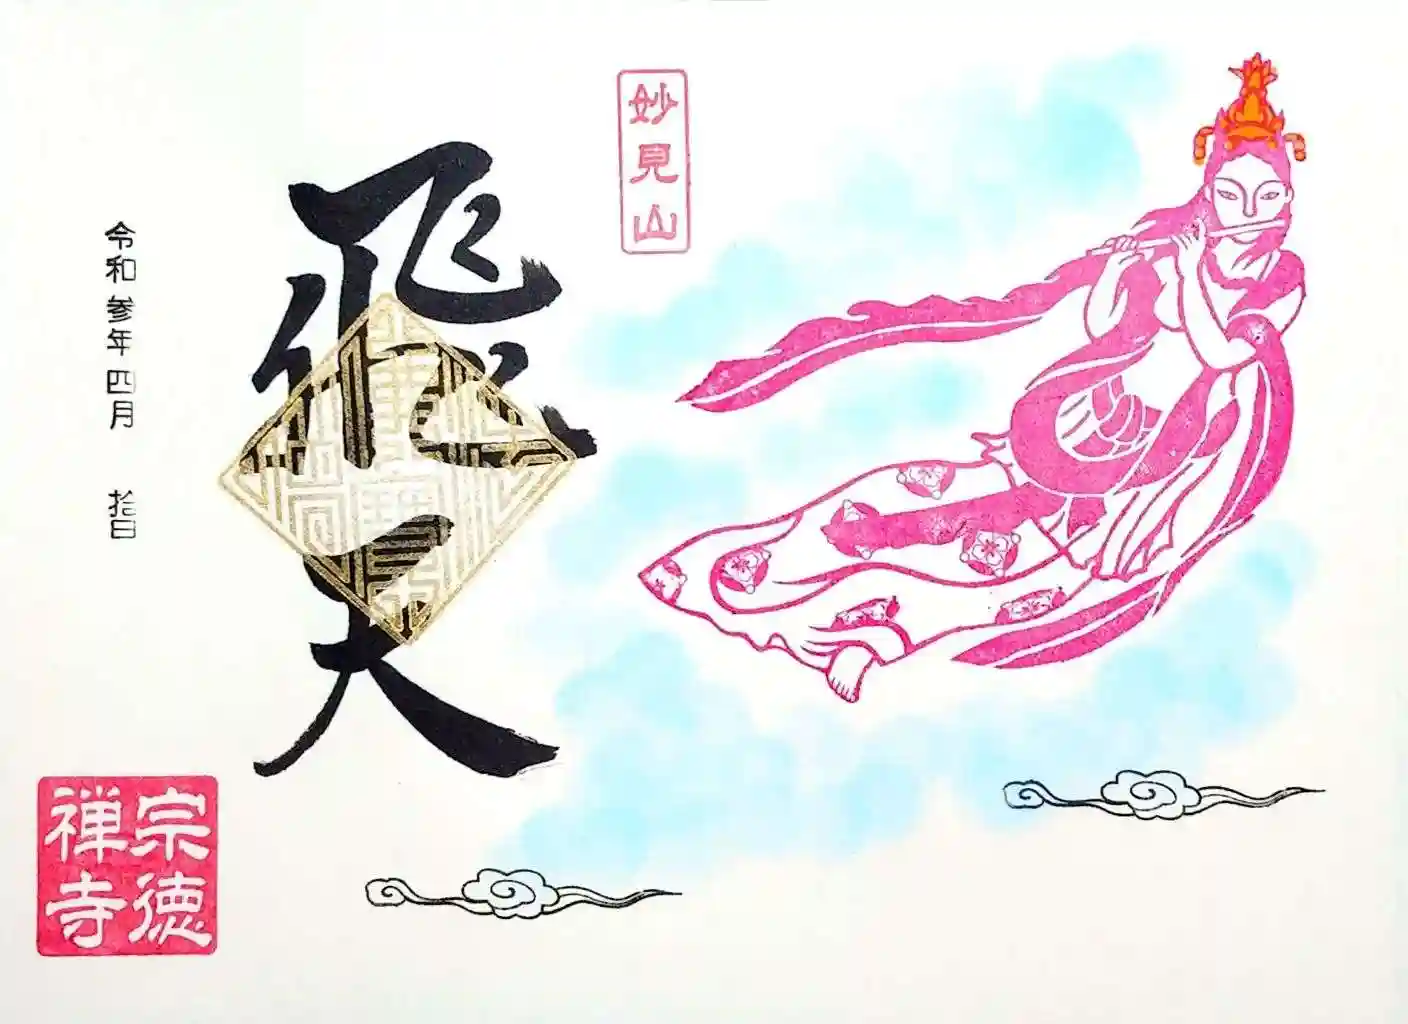 妙見山
飛天
令和参年四月 拾日
宗徳
禅寺